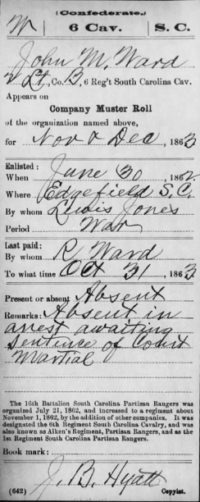 (Confederate.)
W 6 Cav. S. C.
John M. Ward
2 Lt, Co. B, 6 Reg't South Carolina Cav.
Appears on
Company Muster Roll
of the organization named above,
for Nov & Dec, 1863
Enlisted:
When June 30, 1862
Where Edgefield S.C.
By whom Lewis Jones
Period War
Last paid:
By whom R. Ward
To what time Oct 31, 1863
Present or absent Absent
Remarks: Absent in
arrest awaiting
sentence of Court
Martial
The 16th Battalion South Carolina Partisan Rangers was
organized July 21, 1862, and increased to a regiment about
November 1, 1862, by the addition of other companies. It was
designated the 6th Regiment South Carolina Cavalry, and was
also known as Aiken's Regiment, Partisan Rangers, and as the
1st Regiment South Carolina Partisan Rangers.
Book mark:
J. B. Hyatt
(642) Copyist.